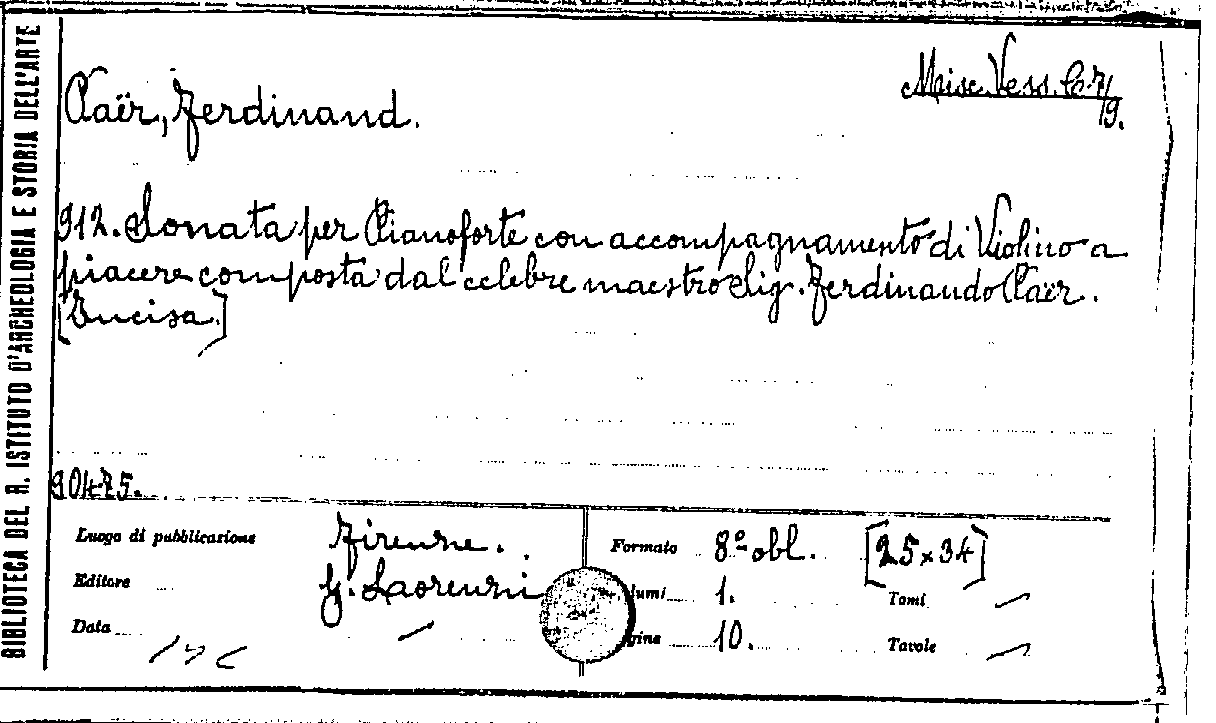 BIBLIOTECA DEL R. ISTITUTO D'ARCHEOLOGIA E STORIA DELL'ARTE
Misc. Vess. Co. 7/19.
Paër, Ferdinand.
912. Sonata per Pianoforte con accompagnamento di Violino a
piacere composta dal celebre maestro Sig. Ferdinando Paër.
[Incisa.]
90475.
Luogo di pubblicazione Firenze.
Editore G. Lorenzi
Data
Formato 8º obl. [25 x 34]
lumi 1. Tomi
gine 10. Tavole